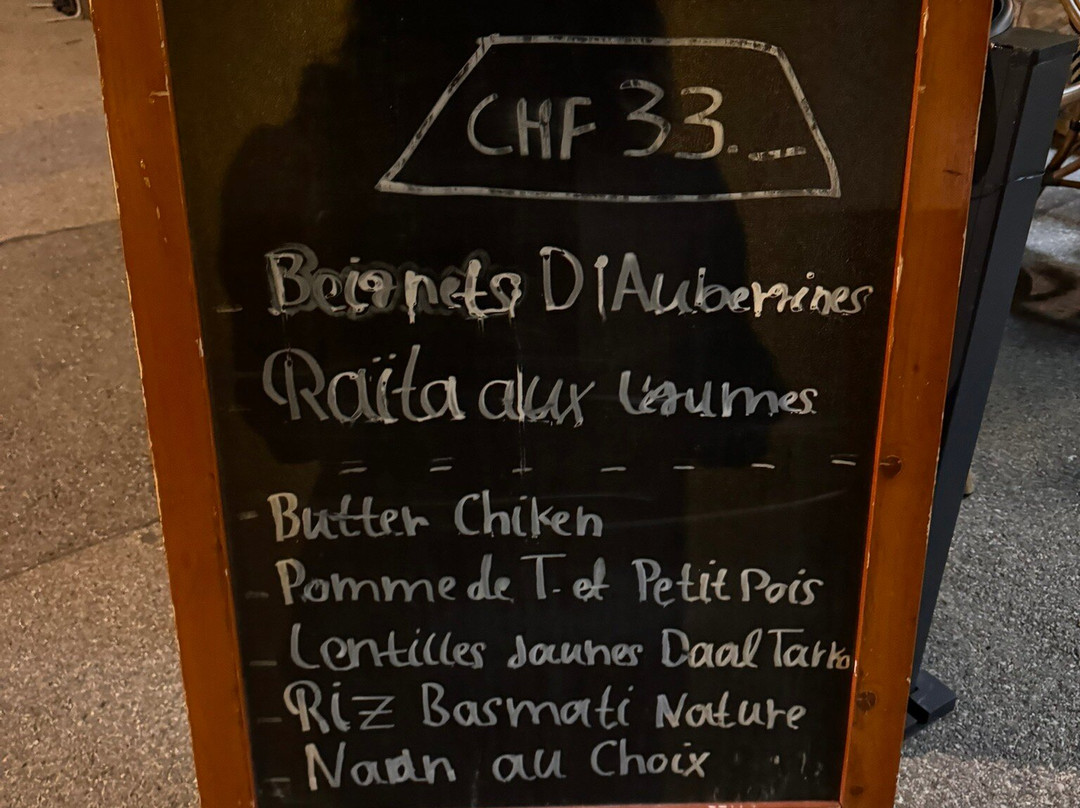 CHF 33.--
- Beignets D'Aubernines
- Raïta aux Légumes
- - - - - - -
- Butter Chiken
- Pomme de T. et Petit Pois
- Lentilles Jaunes Daal Tarka
- Riz Basmati Nature
- Naan au Choix